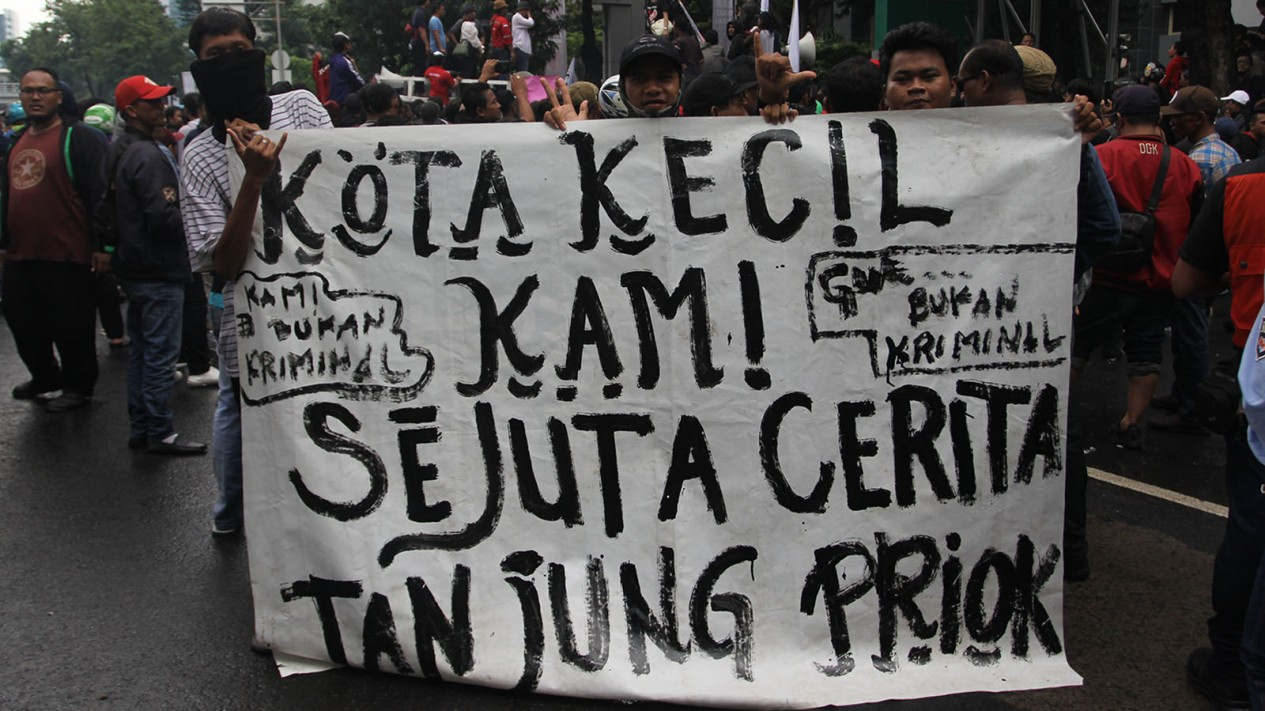 KOTA KECIL
KAMI
KAMI
BUKAN
KRIMINAL
GWE...
BUKAN
KRIMINAL
SEJUTA CERITA
TANJUNG PRIOK
DGK